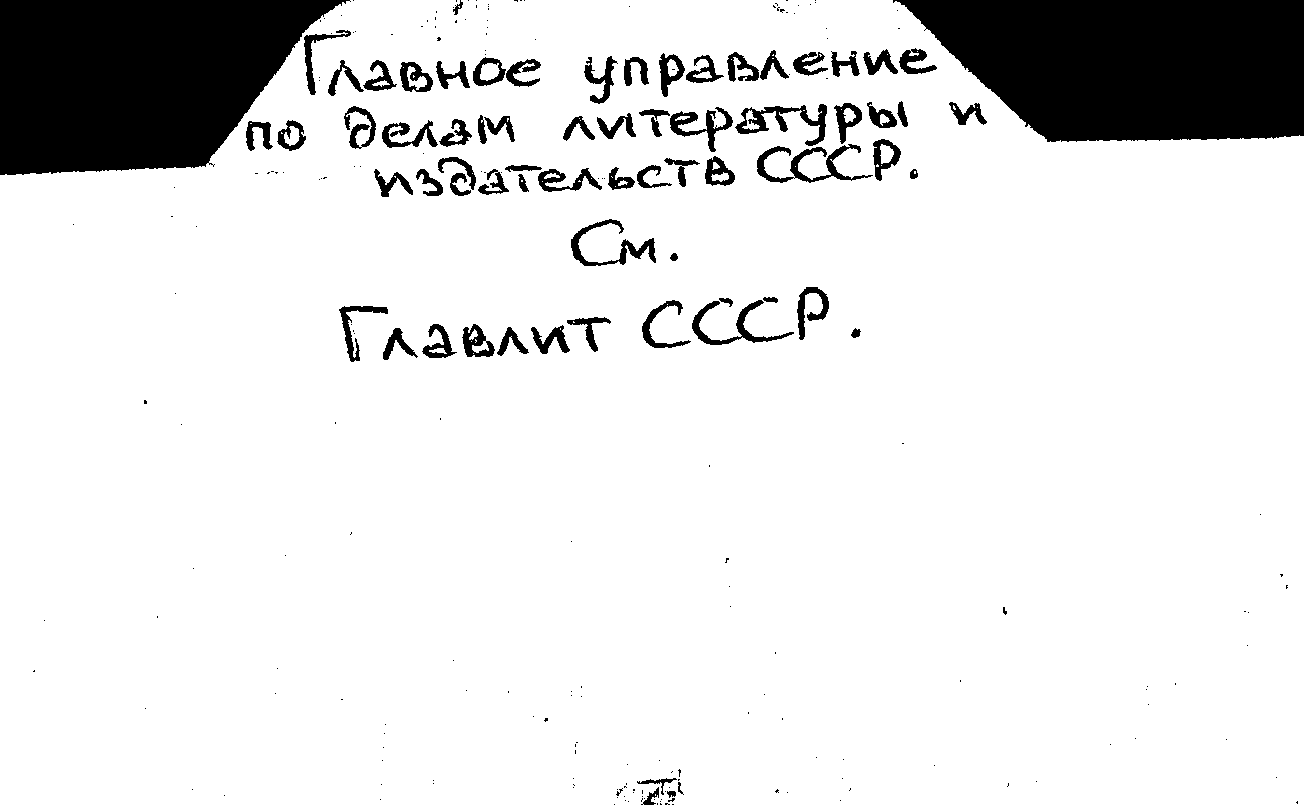 Главное управление
по делам литературы и
издательств СССР.
См.
Главлит СССР.